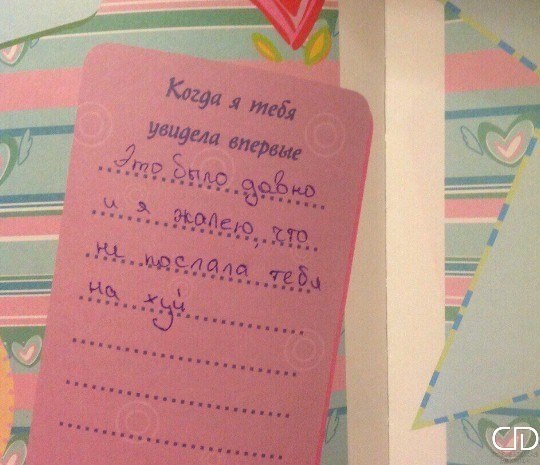 Когда я тебя
увидела впервые
Это было давно
и я жалею, что
не послала тебя
на хуй